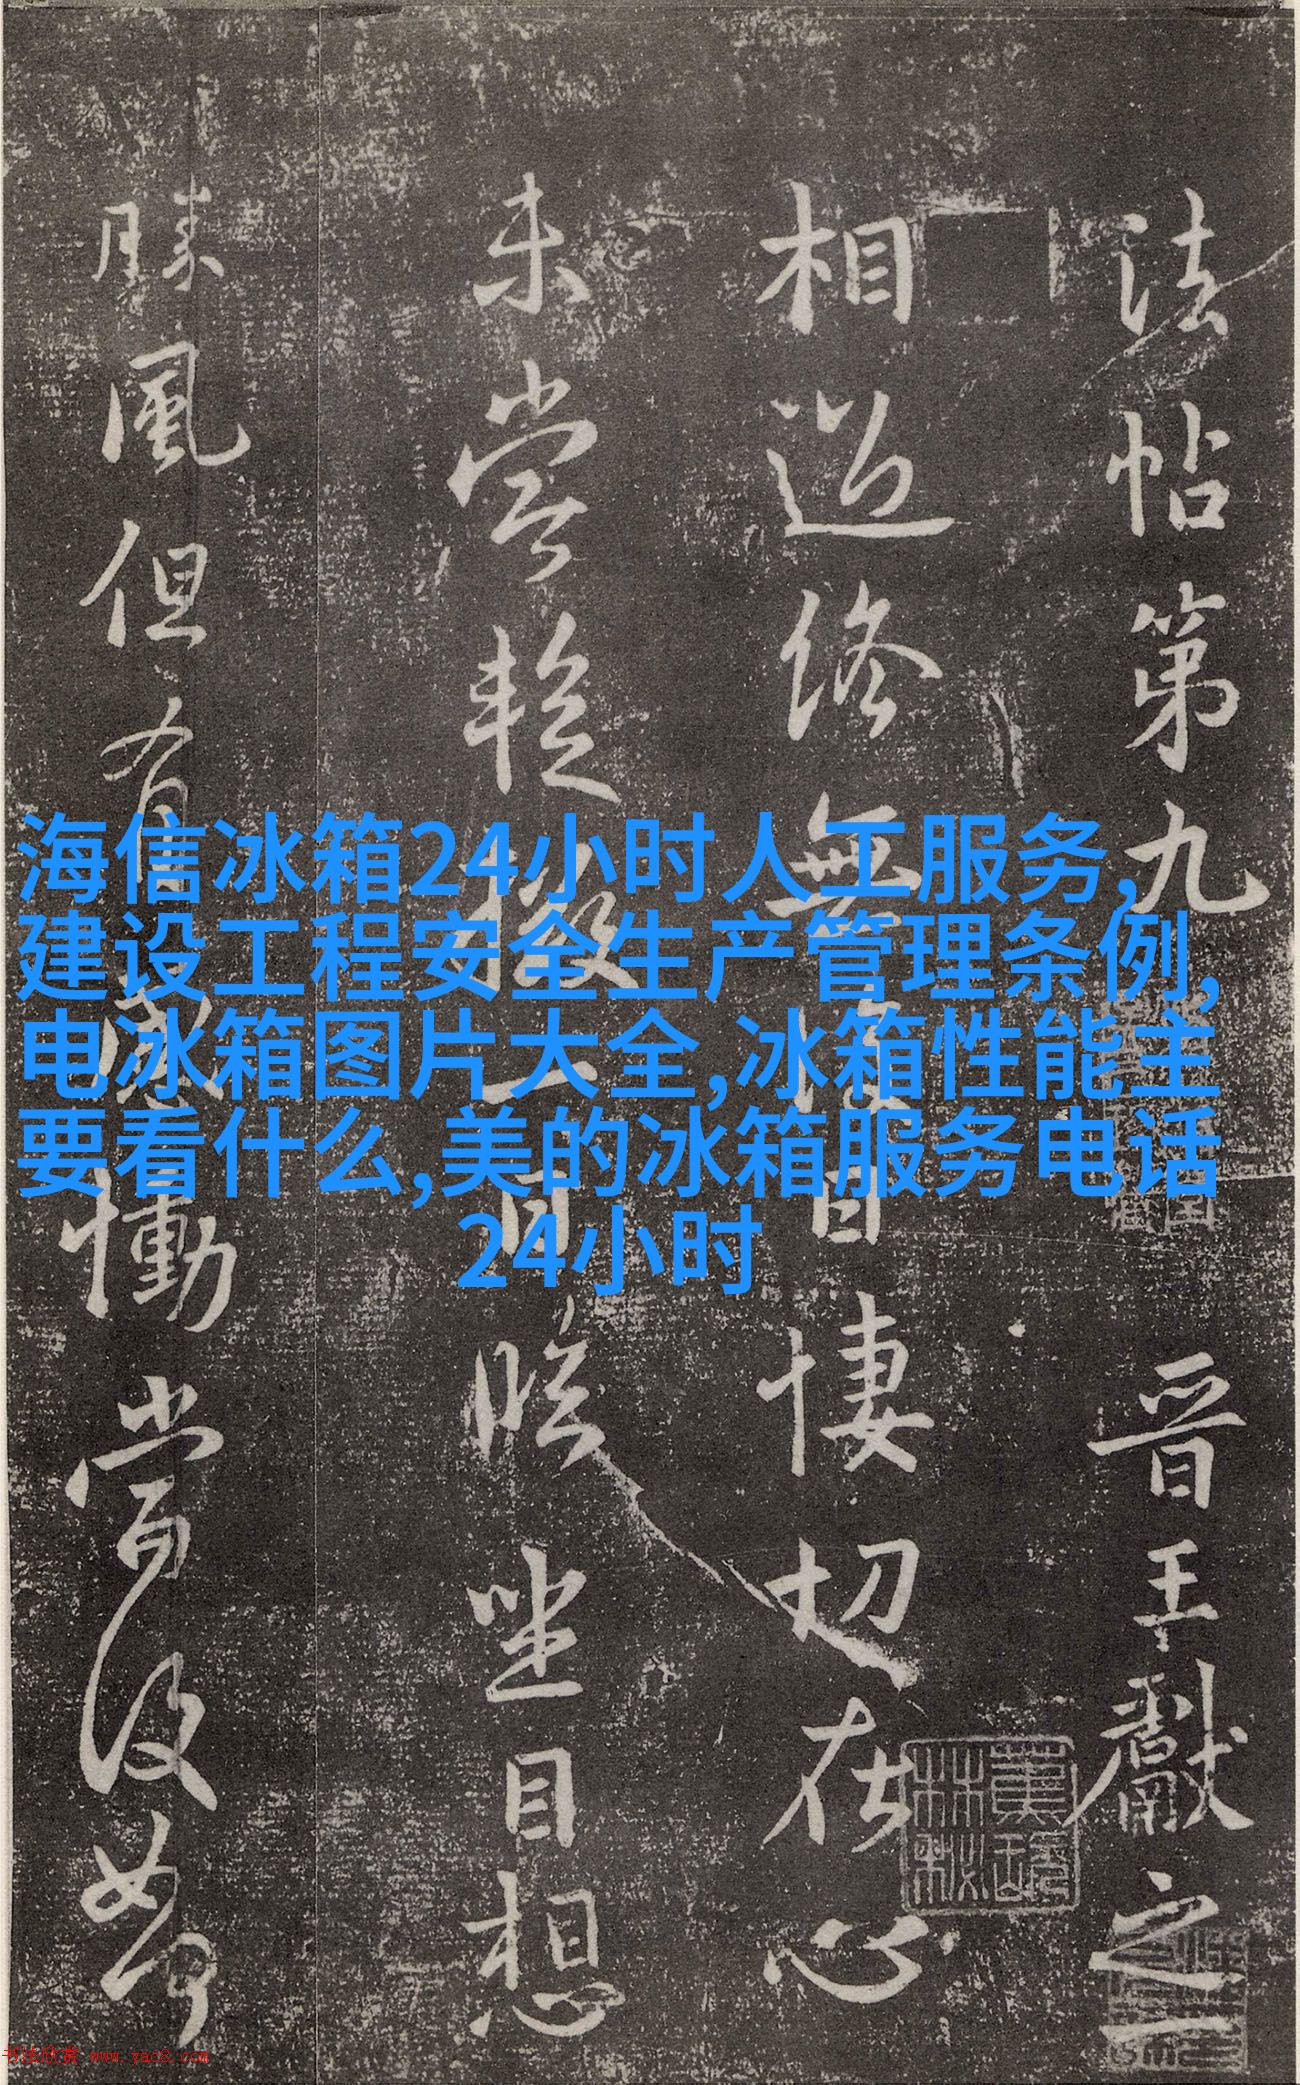 法帖第九 晉王獻之一
相過終無復日悽切在心
未嘗暫掇一日臨坐目想
勝風但有感慟當復如何
海信冰箱24小时人工服务,
建设工程安全生产管理条例,
电冰箱图片大全,冰箱性能主
要看什么,美的冰箱服务电话
24小时
书法欣赏 www.yac8.com